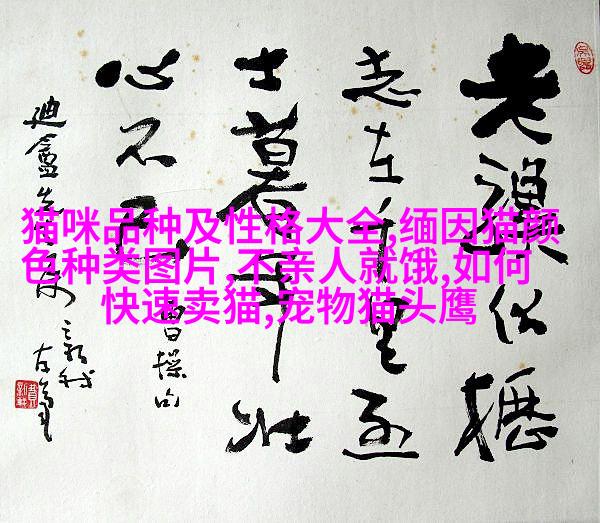 猫咪品种及性格大全,缅因猫颜
色种类图片,不亲人就饿,如何
快速卖猫,宠物猫头鹰
老驥伏櫪
志在千里烈
士暮年壮
心不已
曹操句